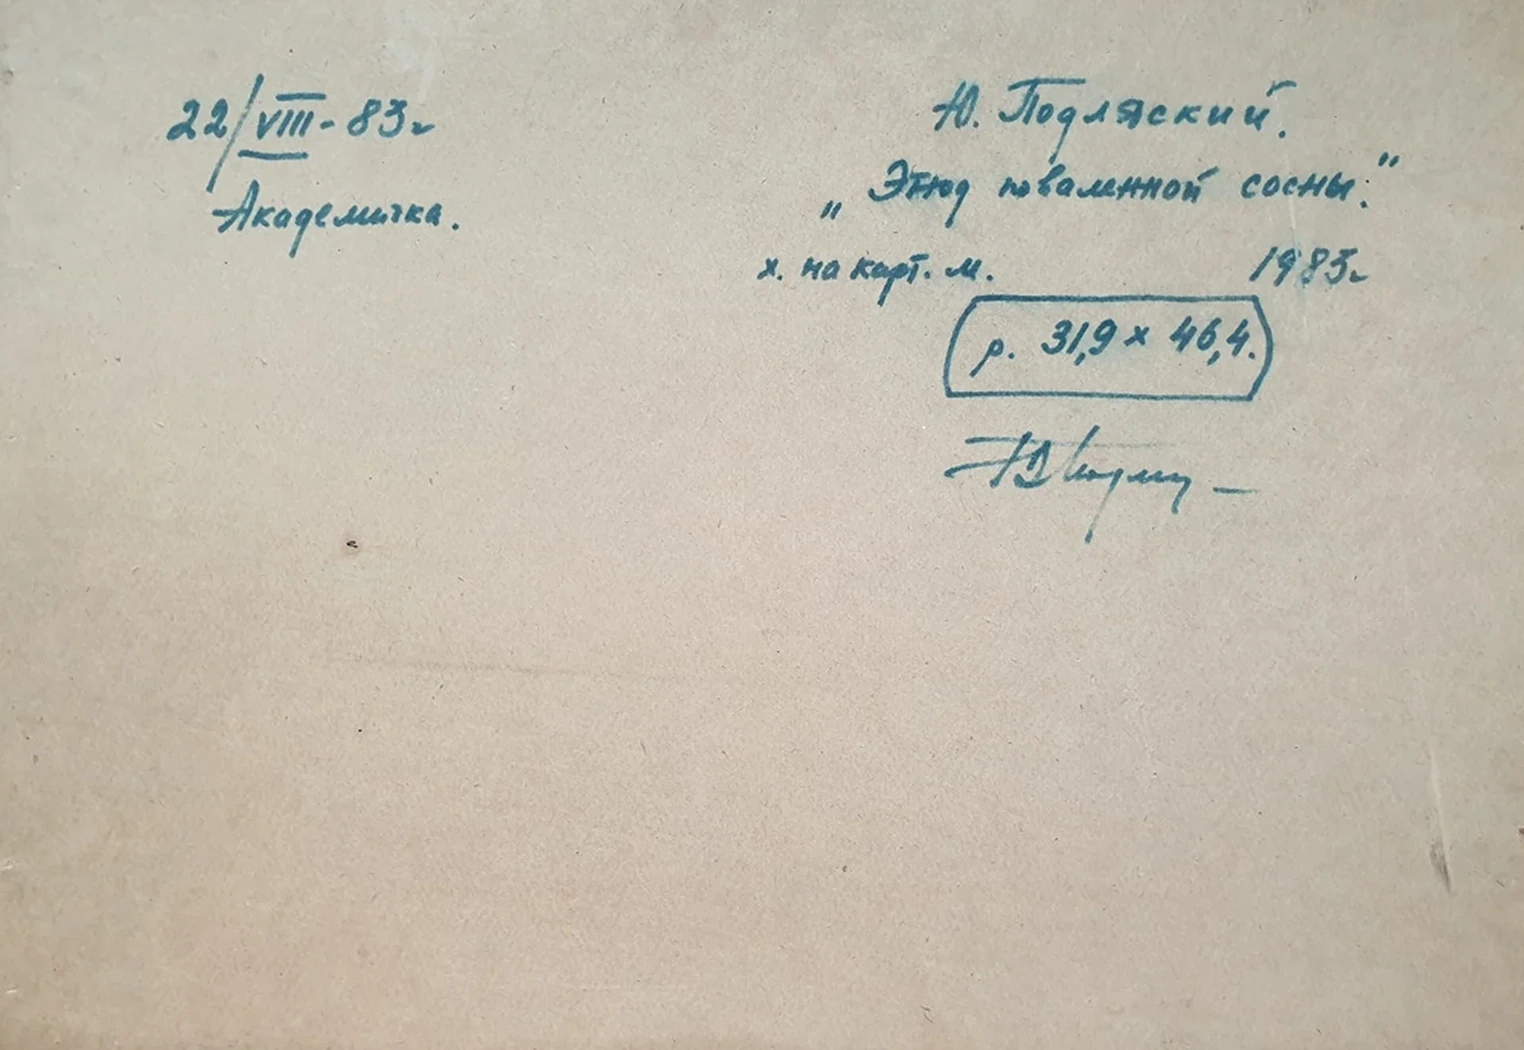 22/VIII-83г
Академичка.
Ю. Подляский.
„Этюд поваленной сосны."
х. на карт. м. 1983г
р. 31,9 х 46,4.